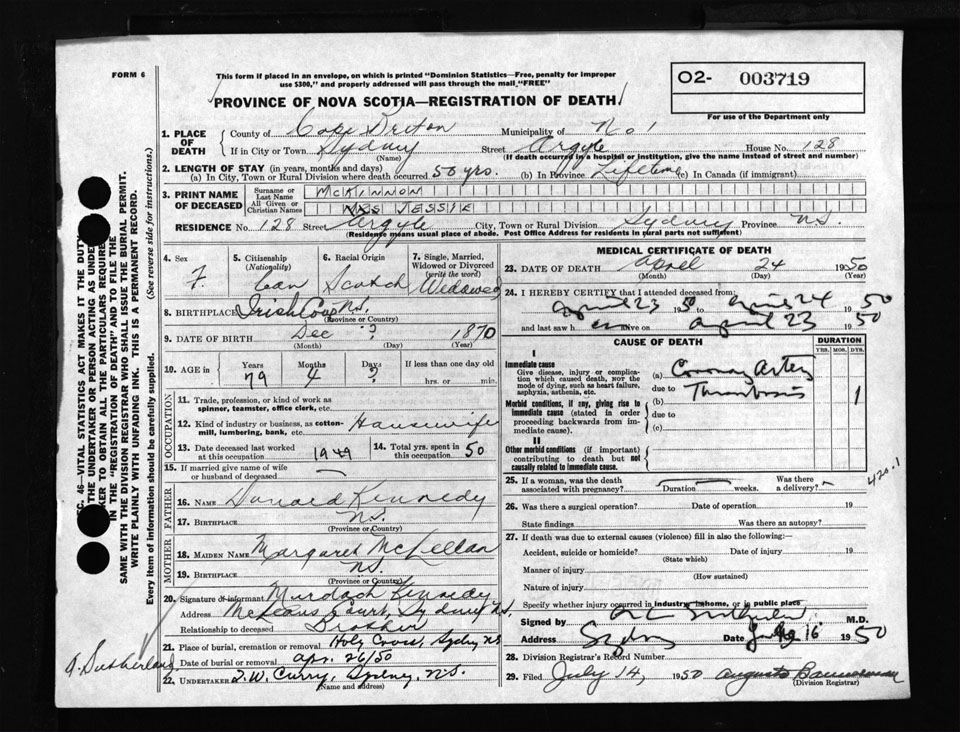 FORM 6
This form if placed in an envelope, on which is printed "Dominion Statistics—Free, penalty for improper
use $300," and properly addressed will pass through the mail "FREE"
O2- 003719
For use of the Department only
PROVINCE OF NOVA SCOTIA—REGISTRATION OF DEATH
1. PLACE OF DEATH
County of Cape Breton Municipality of No 1
If in City or Town Sydney Street Argyle House No. 128
(Name) (If death occurred in a hospital or institution, give the name instead of street and number)
2. LENGTH OF STAY (in years, months and days)
(a) In City, Town or Rural Division where death occurred 50 yrs. (b) In Province Lifetime (c) In Canada (if immigrant)
3. PRINT NAME OF DECEASED
Surname or Last Name McKINNON
All Given or Christian Names MRS JESSIE
RESIDENCE No. 128 Street Argyle City, Town or Rural Division Sydney Province N.S.
(Residence means usual place of abode. Post Office Address for residents in rural parts not sufficient)
4. Sex F.
5. Citizenship (Nationality) Can
6. Racial Origin Scotch
7. Single, Married, Widowed or Divorced (write the word) Widowed
8. BIRTHPLACE Irish Cove N.S.
(Province or Country)
9. DATE OF BIRTH Dec ? 1870
(Month) (Day) (Year)
10. AGE in Years 79 Months 4 Days ? If less than one day old
hrs. or min.
OCCUPATION
11. Trade, profession, or kind of work as
spinner, teamster, office clerk, etc.
12. Kind of industry or business, as cotton-
mill, lumbering, bank, etc. Housewife
13. Date deceased last worked at this occupation 1949
14. Total yrs. spent in this occupation 50
15. If married give name of wife
or husband of deceased
FATHER
16. NAME Donald Kennedy
17. BIRTHPLACE N.S.
(Province or Country)
MOTHER
18. MAIDEN NAME Margaret McLellan
19. BIRTHPLACE N.S.
(Province or Country)
20. Signature of informant Murdoch Kennedy
Address McLeans Court, Sydney NS
Relationship to deceased Brother
21. Place of burial, cremation or removal Holy Cross, Sydney NS
Date of burial or removal Apr. 26/50
22. UNDERTAKER T.W. Curry, Sydney, N.S.
(Name and address)
MEDICAL CERTIFICATE OF DEATH
23. DATE OF DEATH April 24 1950
(Month) (Day) (Year)
24. I HEREBY CERTIFY that I attended deceased from:
April 23 1950 to April 24 1950
and last saw h er alive on April 23 1950
CAUSE OF DEATH
DURATION
YRS. MOS. DYS.
I
Immediate cause
Give disease, injury or complica-
tion which caused death, NOT the
mode of dying, such as heart failure,
asphyxia, asthenia, etc.
(a) Coronary Artery
due to Thrombosis 1
Morbid conditions, if any, giving rise to
immediate cause (stated in order
proceeding backwards from im-
mediate cause).
(b)
due to
(c)
II
Other morbid conditions (if important)
contributing to death but not
causally related to immediate cause.
420.1
25. If a woman, was the death
associated with pregnancy? Duration weeks. Was there
a delivery?
26. Was there a surgical operation? Date of operation 19
State findings Was there an autopsy?
27. If death was due to external causes (violence) fill in also the following:—
Accident, suicide or homicide? Date of injury 19
(State which)
Manner of injury
(How sustained)
Nature of injury
Specify whether injury occurred in industry, in home, or in public place
Signed by M.D.
Address Sydney Date July 16 1950
28. Division Registrar's Record Number
29. Filed July 14, 1950 Augusta Bannerman
(Division Registrar)
SEC. 46—VITAL STATISTICS ACT MAKES IT THE DUTY
THE UNDERTAKER OR PERSON ACTING AS UNDER
KER TO OBTAIN ALL THE PARTICULARS REQUIRED
IN THE "REGISTRATION OF DEATH" AND TO FILE THE
SAME WITH THE DIVISION REGISTRAR WHO SHALL ISSUE THE BURIAL PERMIT.
WRITE PLAINLY WITH UNFADING INK. THIS IS A PERMANENT RECORD.
Every item of information should be carefully supplied. (See reverse side for instructions.)
Sutherland